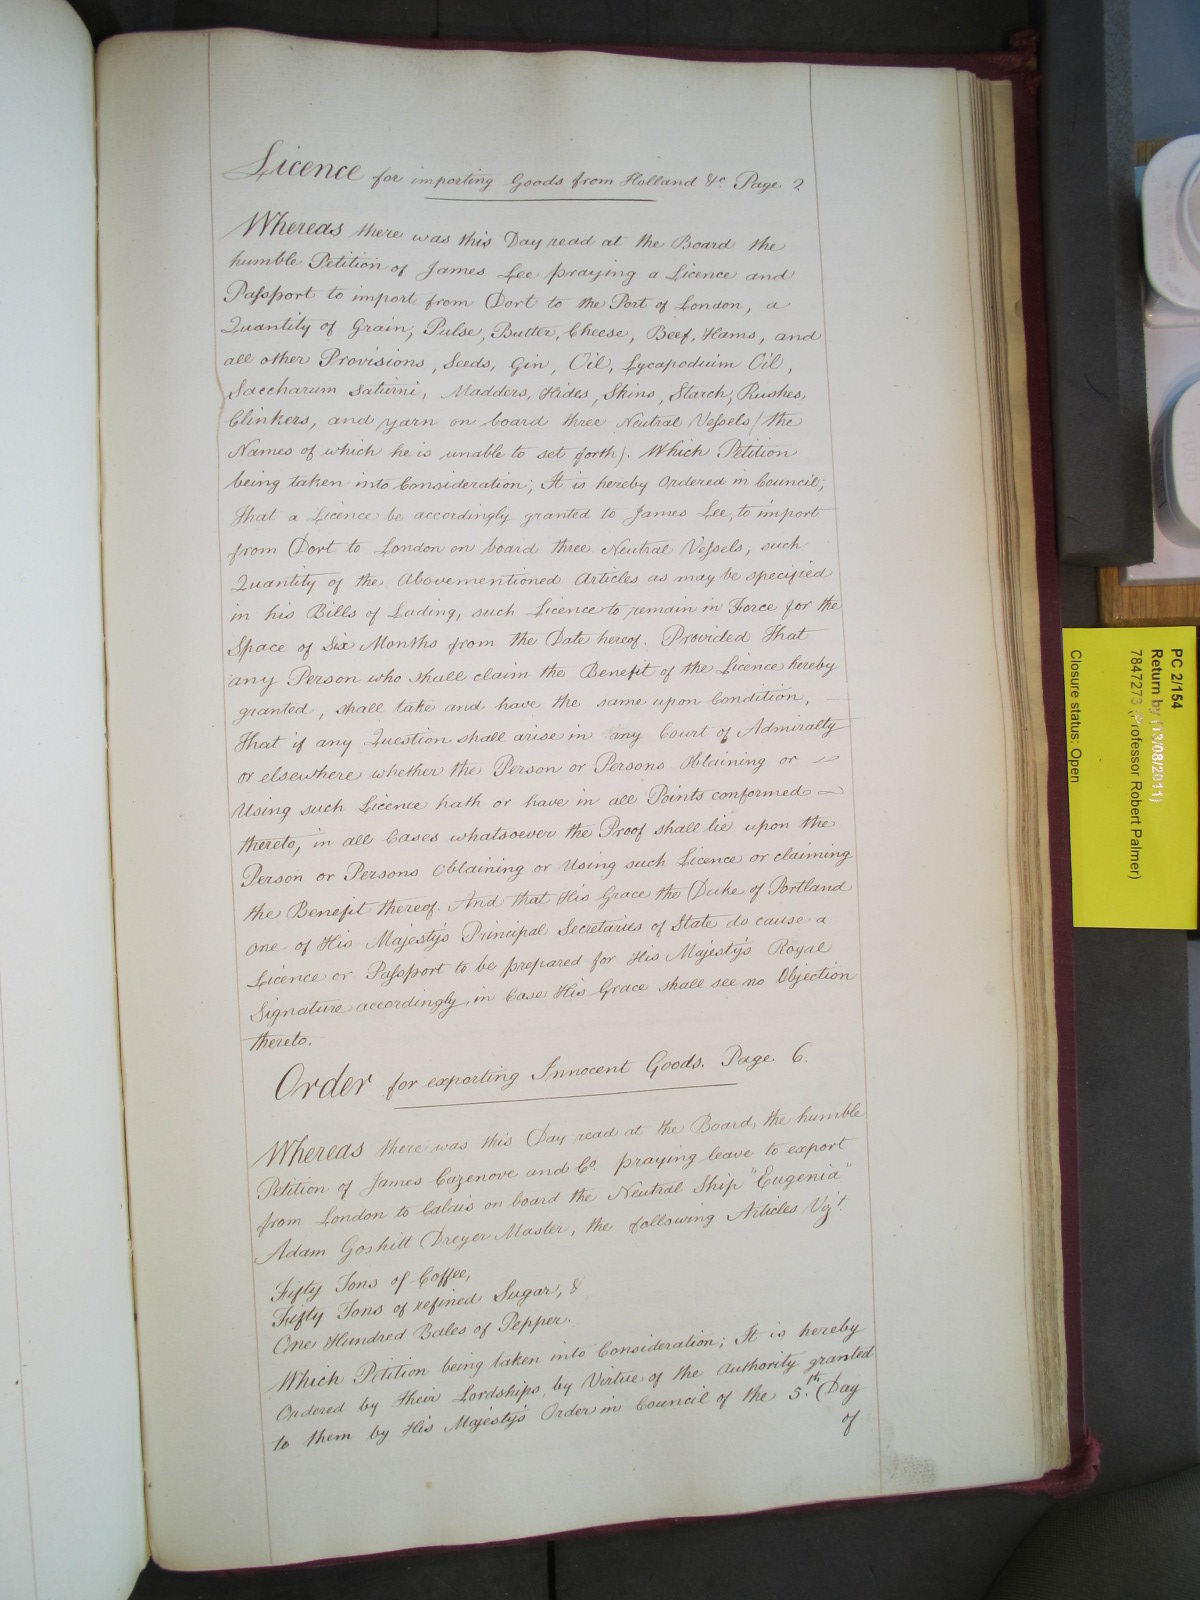 Licence for importing Goods from Holland &c. Page 2
Whereas there was this Day read at the Board the
humble Petition of James Lee praying a Licence and
Passport to import from Dort to the Port of London, a
Quantity of Grain, Pulse, Butter, Cheese, Beef, Hams, and
all other Provisions, Seeds, Gin, Oil, Lycapodium Oil,
Saccharum Saturni, Madders, Hides, Skins, Starch, Rushes,
Clinkers, and yarn on board three Neutral Vessels (the
Names of which he is unable to set forth). Which Petition
being taken into Consideration; It is hereby Ordered in Council;
that a Licence be accordingly granted to James Lee, to import
from Dort to London on board three Neutral Vessels, such
Quantity of the Abovementioned Articles as may be specified
in his Bills of Lading, such Licence to remain in Force for the
Space of Six Months from the Date hereof. Provided that
any Person who shall claim the Benefit of the Licence hereby
granted, shall take and have the same upon Condition,
that if any Question shall arise in any Court of Admiralty
or elsewhere whether the Person or Persons Obtaining or
Using such Licence hath or have in all Points conformed
thereto, in all Cases whatsoever the Proof shall lie upon the
Person or Persons Obtaining or Using such Licence or claiming
the Benefit thereof. And that His Grace the Duke of Portland
one of His Majesty's Principal Secretaries of State do cause a
Licence or Passport to be prepared for His Majesty's Royal
Signature accordingly, in Case His Grace shall see no Objection
thereto.
Order for exporting Innocent Goods. Page. 6.
Whereas there was this Day read at the Board, the humble
Petition of James Cazenove and Co. praying leave to export
from London to Calais on board the Neutral Ship "Eugenia"
Adam Goshilt Dreyer Master, the following Articles Vizt.
Fifty Tons of Coffee,
Fifty Tons of refined Sugar, &
One Hundred Bales of Pepper.
Which Petition being taken into Consideration; It is hereby
Ordered by their Lordships, by Virtue of the Authority granted
to them by His Majesty's Order in Council of the 5.th Day
of
PC 2/154
Return by (13/08/2011)
7847273 (Professor Robert Palmer)
Closure status: Open